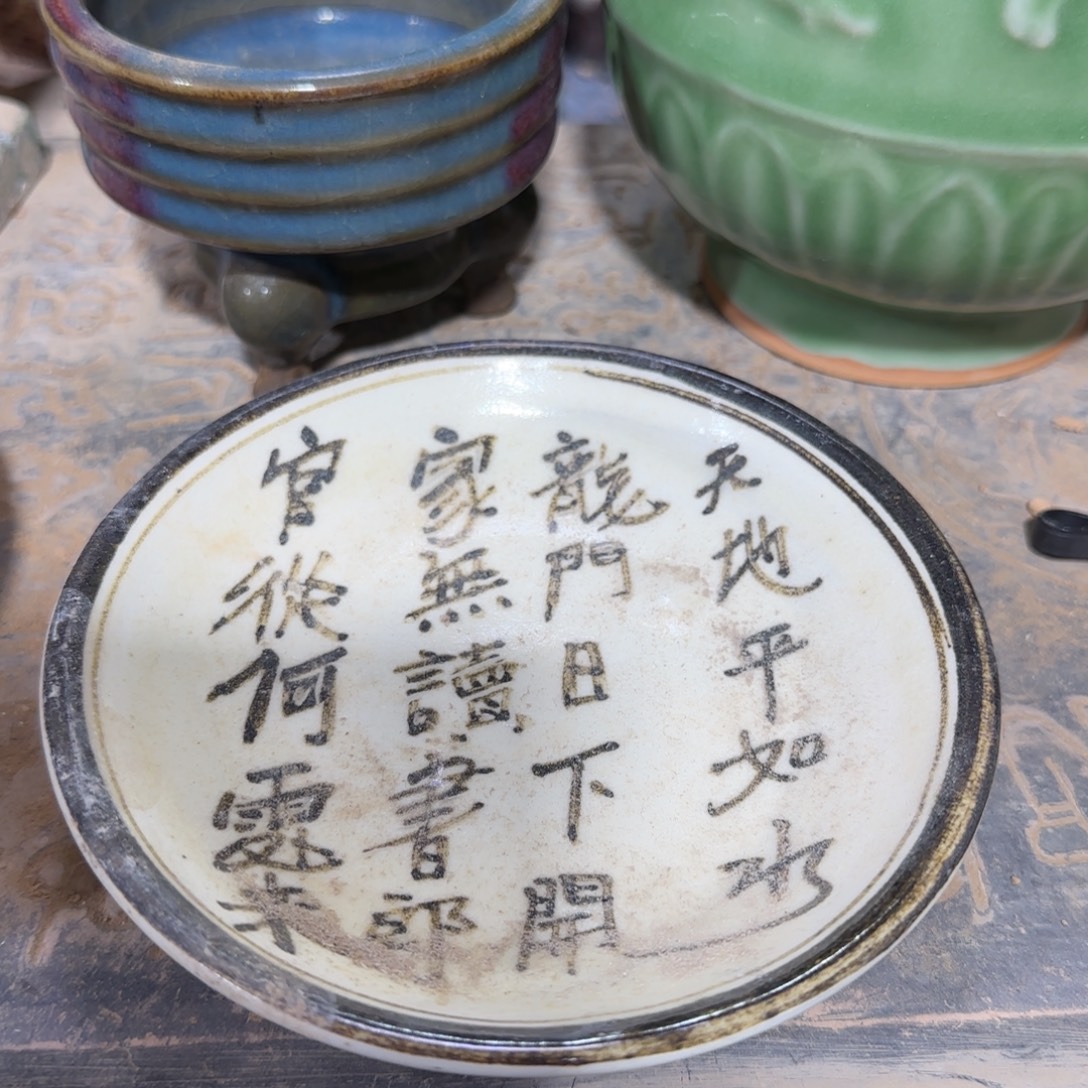 天地平如水
龍門日下開
家無讀書郎
官從何處来